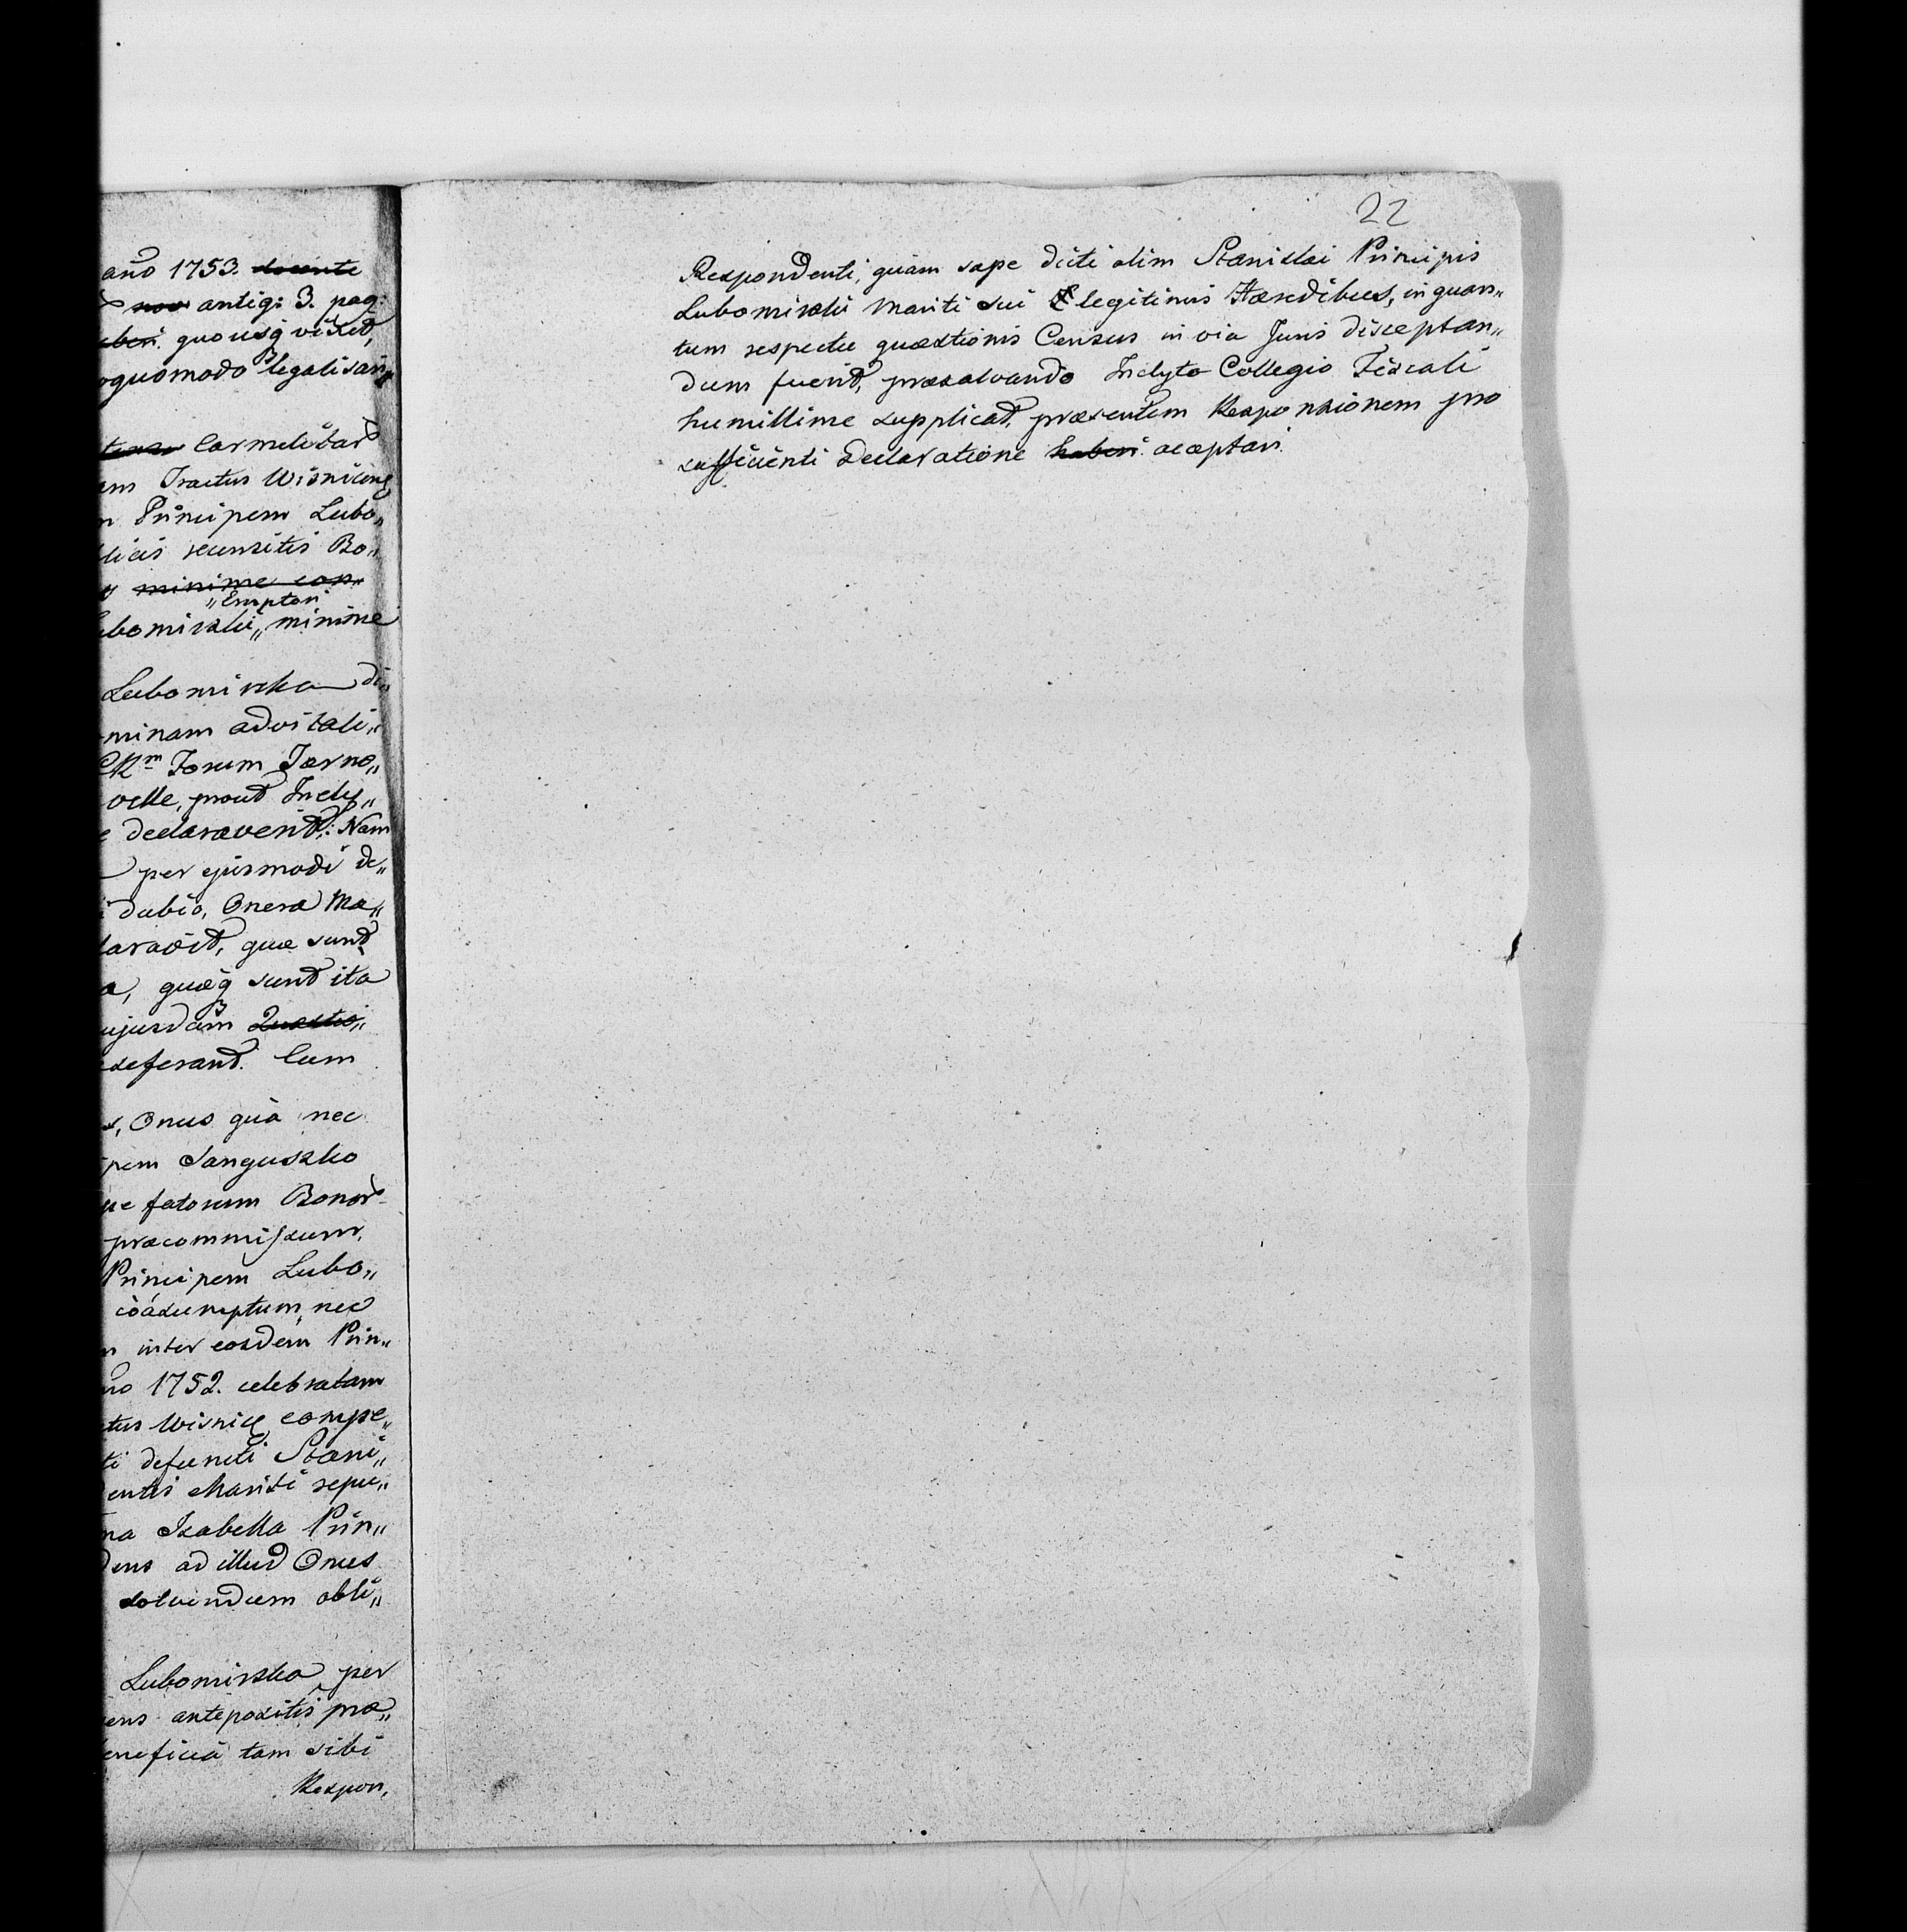 año 1753. docente
nov antiq: 3. pag:
quousq̃ vixed,
quomodo legalisan„
Carmelitar
Tractus Wisnicens
Principem Lubo„
recensitis Bo„
minime com„
„Emptori
bomirski„ minime
Lubomirska di„
minam advitali„
Forum Tarno„
velle, prout Incly„
declaraverit: Nam
per ejusmodi de„
dubio, Onera Ma„
laravit, quæ sunt
quæq̃ sunt ita
ujusdam Quæstio„
deferant. Cum
Onus quà nec
pem Sanguszko
fatorum Bonor
præcommissum,
Principem Lubo„
coàsumptum, nec
inter eosdem Prin„
no 1752. celebratam
tus Wisnic, compe„
ti defuncti Stani„
entis Mariti repu„
na Isabella Prin„
dens ad illud Onus
solvendum obli„
Lubomirska per
ens antepositis præ„
eneficia tam sibi
Respon,
22
Respondenti, quàm sæpe dicti olim Stanislai Principis
Lubomirski Mariti sui legitimis Hæredibus, in quan„
tum respectu quæstionis Census in via Juris disceptan„
dum fuerit, præsalvando Inclyto Collegio Fiscali
humillime supplicat, præsentem Responsionem pro
sufficienti declaratione haberi. acceptari.